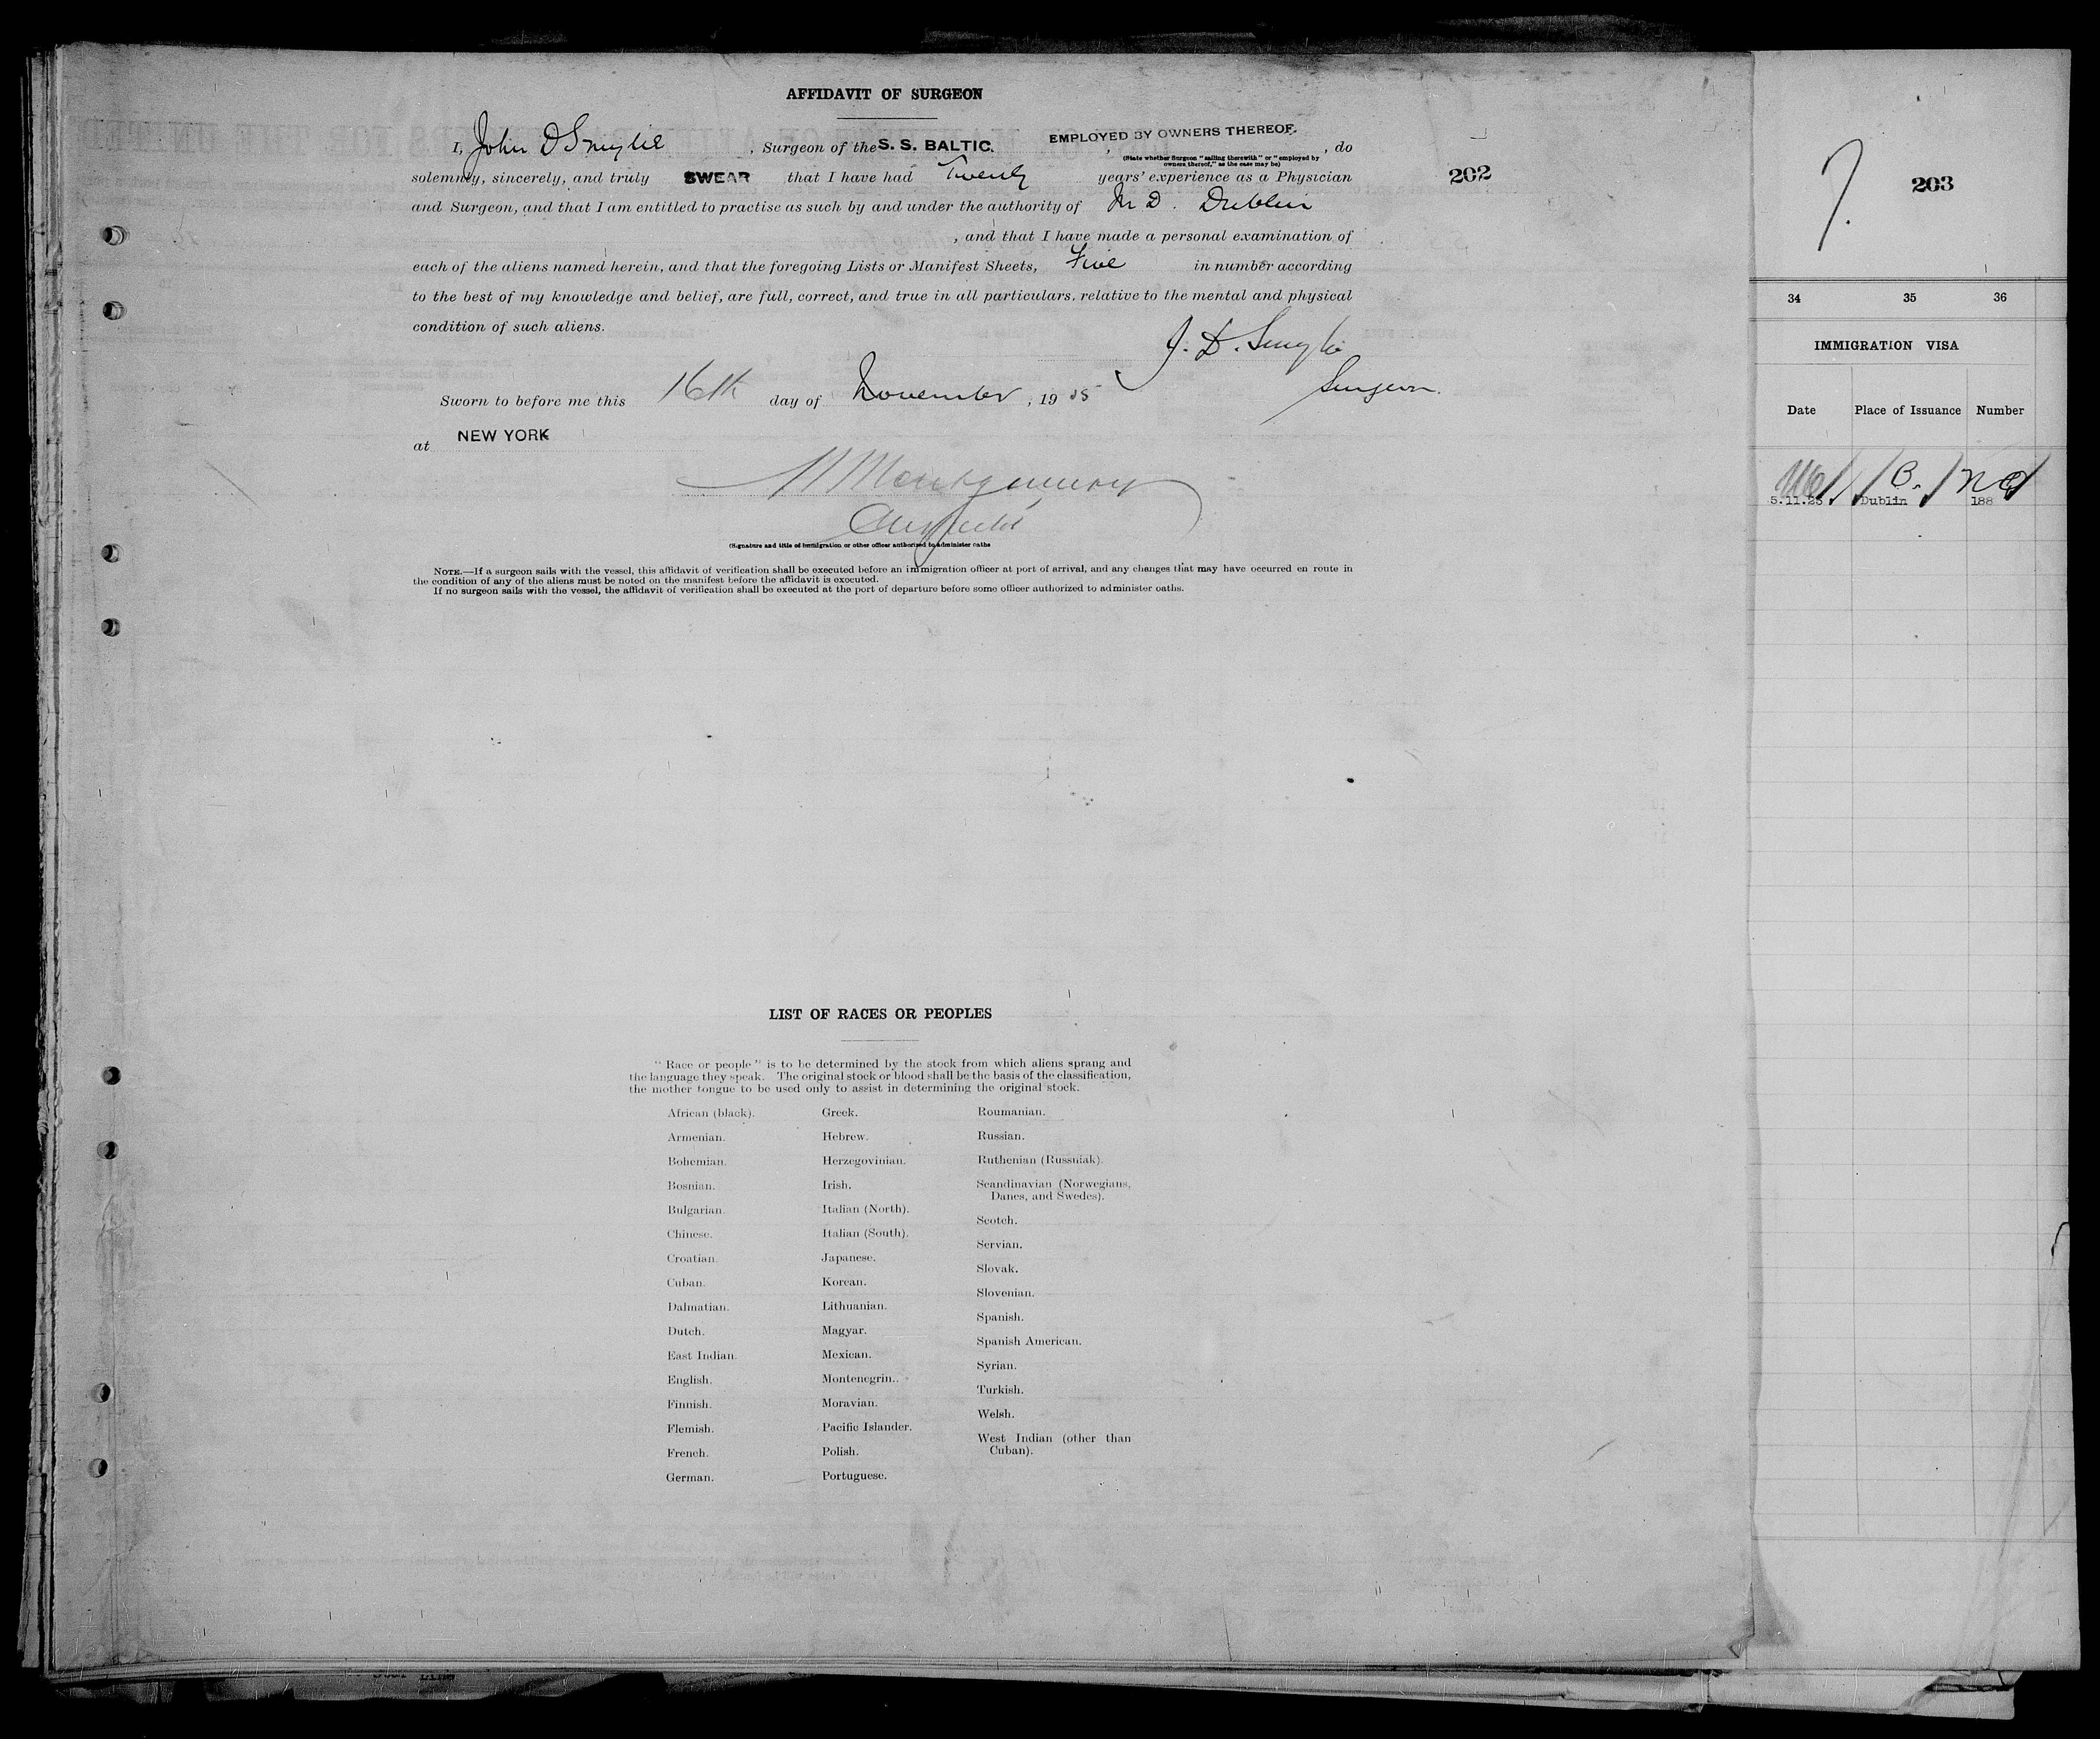 AFFIDAVIT OF SURGEON
I, John D Smylie, Surgeon of the S. S. BALTIC. EMPLOYED BY OWNERS THEREOF. , do
(State whether Surgeon "sailing therewith" or "employed by
owners thereof," as the case may be)
solemnly, sincerely, and truly SWEAR that I have had Twenty years' experience as a Physician
202
and Surgeon, and that I am entitled to practise as such by and under the authority of M D. Dublin
, and that I have made a personal examination of
each of the aliens named herein, and that the foregoing Lists or Manifest Sheets, Five in number according
to the best of my knowledge and belief, are full, correct, and true in all particulars, relative to the mental and physical
condition of such aliens.
J. D. Smylie
Surgeon.
Sworn to before me this 16th day of November, 19 25
at NEW YORK
Montgomery
(Signature and title of immigration or other officer authorized to administer oaths
NOTE.—If a surgeon sails with the vessel, this affidavit of verification shall be executed before an immigration officer at port of arrival, and any changes that may have occurred en route in
the condition of any of the aliens must be noted on the manifest before the affidavit is executed.
If no surgeon sails with the vessel, the affidavit of verification shall be executed at the port of departure before some officer authorized to administer oaths.
LIST OF RACES OR PEOPLES
"Race or people" is to be determined by the stock from which aliens sprang and
the language they speak. The original stock or blood shall be the basis of the classification,
the mother tongue to be used only to assist in determining the original stock.
African (black).
Armenian.
Bohemian.
Bosnian.
Bulgarian.
Chinese.
Croatian.
Cuban.
Dalmatian.
Dutch.
East Indian.
English.
Finnish.
Flemish.
French.
German.
Greek.
Hebrew.
Herzegovinian.
Irish.
Italian (North).
Italian (South).
Japanese.
Korean.
Lithuanian.
Magyar.
Mexican.
Montenegrin.
Moravian.
Pacific Islander.
Polish.
Portuguese.
Roumanian.
Russian.
Ruthenian (Russniak).
Scandinavian (Norwegians,
Danes, and Swedes).
Scotch.
Servian.
Slovak.
Slovenian.
Spanish.
Spanish American.
Syrian.
Turkish.
Welsh.
West Indian (other than
Cuban).
7.
203
34 35 36
IMMIGRATION VISA
Date Place of Issuance Number
5.11.25 Dublin 188